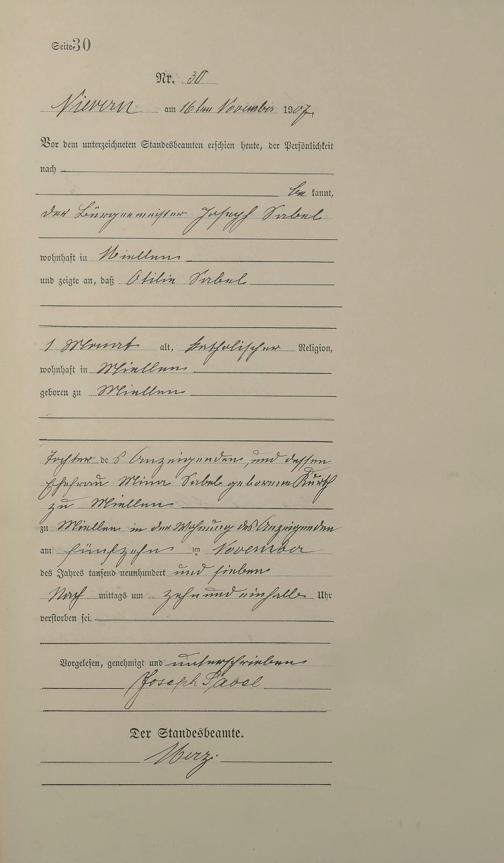 Seite 30
Nr. 30
Nievern am 16ten November 1907.
Vor dem unterzeichneten Standesbeamten erschien heute, der Persönlichkeit
nach
be kannt,
der Bürgermeister Joseph Sabel
wohnhaft in Miellen
und zeigte an, daß Otilie Sabel
1 Monat alt, katholischer Religion,
wohnhaft in Miellen
geboren zu Miellen
Tochter des Anzeigenden, und dessen
Ehefrau Mina Sabel geborene Kurth
zu Miellen
zu Miellen in der Wohnung des Anzeigenden
am fünfzehn im November
des Jahres tausend neunhundert und sieben
Nach mittags um zehn und einhalb Uhr
verstorben sei.
Vorgelesen, genehmigt und unterschrieben
Joseph Sabel
Der Standesbeamte.
Merz.